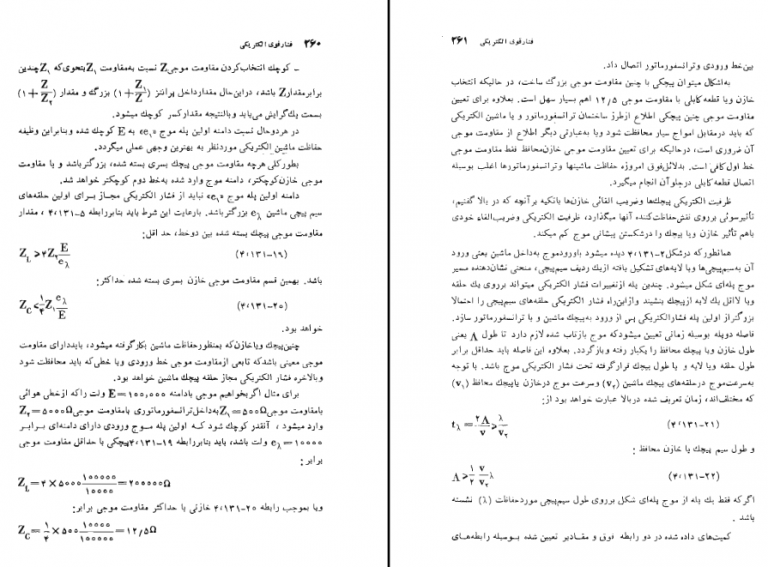 ۳۶۰ فشارقوی الکتریکی
ـ کوچک انتخاب‌کردن مقاومت موجی Z نسبت به‌مقاومت موجی Z۱ بنحوی که Z۱ چندین
برابرمقدار Z باشد، دراین‌حال مقدارداخل پرانتز (۱+Z۱/Z) بزرگ و مقدار (۱+Z/Z۲)
بسمت یک‌گرایش می‌یابد وبالنتیجه مقدارکسر کوچک میشود.
در هردوحال نسبت دامنه اولین پله موج «e۱» به E کوچک شده وبنابراین وظیفه
حفاظت ماشین الکتریکی موردنظر به بهترین وجهی عملی میگردد.
بطورکلی هرچه مقاومت موجی پیچک بسری بسته شده، بزرگتر باشد و یا مقاومت
موجی خازن‌کوچکتر، دامنه موج وارد شده به‌خط دوم کوچکتر خواهد شد.
دامنه اولین پله موج «e۱» نباید از فشار الکتریکی مجاز برای اولین حلقه‌های
سیم پیچی ماشین eλ بزرگتر باشد. بارعایت این شرط باید بنابررابطه ۵-۴٫۱۳۱ ، مقدار
مقاومت موجی پیچک بسته شده بین دوخط، حد اقل:
ZL ⩾ ۴Z۲ E/eλ (۴٫۱۳۱-۱۹)
باشد. بهمین قسم مقاومت موجی خازن بسری بسته شده حداکثر:
ZC ⩽ ۱/۴ Z۱ eλ/E (۴٫۱۳۱-۲۰)
خواهد بود.
چنین‌پیچک ویاخازن‌که بمنظورحفاظت ماشین بکارگرفته میشود، بایددارای مقاومت
موجی معینی باشدکه تابعی ازمقاومت موجی خط ورودی ویا خطی‌که باید محافظت شود
وبالاخره فشار الکتریکی مجاز حلقه ماشین خواهد بود.
برای مثال اگربخواهیم موجی بادامنه E=۱۰۰۰۰۰ ولت راکه ازخطی هوائی
بامقاومت‌موجی Z۱=۵۰۰Ω به‌داخل‌ترانسفورماتوری بامقاومت موجی Z۲=۵۰۰۰Ω
وارد میشود ، آنقدر کوچک شود که اولین پله موج ورودی دارای دامنه‌ای برابر
eλ=۱۰۰۰۰ ولت باشد، باید بنابررابطه ۱۹-۴٫۱۳۱ پیچکی با حداقل مقاومت موجی
برابر:
ZL=۴×۵۰۰۰ ۱۰۰۰۰۰/۱۰۰۰۰=۲۰۰۰۰۰Ω
ویا بموجب رابطه ۲۰-۴٫۱۳۱ خازنی با حداکثر مقاومت موجی برابر:
ZC=۱/۴×۵۰۰ ۱۰۰۰۰/۱۰۰۰۰۰=۱۲/۵Ω
فشارقوی الکتریکی ۳۶۱
بین‌خط ورودی وترانسفورماتور اتصال داد.
به‌اشکال میتوان پیچکی با چنین مقاومت موجی بزرگ ساخت، در حالیکه انتخاب
خازن ویا قطعه‌کابلی با مقاومت موجی ۱۲/۵ اهم بسیار سهل است. بعلاوه برای تعیین
مقاومت موجی چنین پیچکی اطلاع ازطرز ساختمان ترانسفورماتور و یا ماشین الکتریکی
که باید درمقابل امواج سیار محافظت شود ویا به‌عبارتی دیگر اطلاع از مقاومت موجی
آن ضروری است، درحالیکه برای تعیین مقاومت موجی خازن‌محافظ فقط مقاومت موجی
خط اول‌کافی است. بدلائل‌فوق امروزه حفاظت ماشینها وترانسفورماتورها اغلب بوسیله
اتصال قطعه‌کابلی درجلوآن انجام میگیرد.
ظرفیت الکتریکی پیچک‌ها وضریب القائی خازن‌ها بااینکه برآنچه که در بالا گفتیم،
تأثیرسوئی برروی نقش‌حفاظت‌کننده آنها میگذارد، ظرفیت الکتریکی وضریب‌القاء خودی
باهم تأثیر خازن ویا پیچک را درشکستن پیشانی موج کم میکند.
همانطورکه درشکل ۲-۴٫۱۳۱ دیده میشود باورودموج به‌داخل ماشین یعنی ورود
آن به‌سیم‌پیچی‌ها ویا لایه‌های تشکیل یافته ازیک ردیف سیم‌پیچی، منحنی نشان‌دهنده مسیر
موج پله‌ای شکل میشود. چندین پله ازتغییرات فشار الکتریکی میتواند برروی یک حلقه
ویا لااقل یک لایه ازپیچک بنشیند وازاین‌راه فشار الکتریکی حلقه‌های سیم‌پیچی را احتمالا
بزرگتراز اولین پله فشارالکتریکی پس از ورود به‌پیچک ماشین و یا ترانسفورماتور سازد.
فاصله دوپله بوسیله زمانی تعیین میشودکه موج بازتاب شده لازم دارد تا طول Λ یعنی
طول خازن ویا پیچک محافظ را یکبار رفته وبازگردد. بعلاوه این فاصله باید حداقل برابر
طول حلقه ویا لایه و یا طول پیچک قرارگرفته تحت فشار الکتریکی موج باشد. با توجه
به‌سرعت‌موج درحلقه‌های پیچک ماشین (v۲) وسرعت موج درخازن یاپیچک محافظ (v۱)
که مختلف‌اند، زمان تعریف شده دربالا عبارت خواهد بود از:
tλ=۲Λ/v⩾λ/v۲ (۴٫۱۳۱-۲۱)
و طول سیم پیچک یا خازن محافظ :
Λ⩾۱/۲ v/v۲ λ (۴٫۱۳۱-۲۲)
اگرکه فقط یک پله از موج پله‌ای شکل برروی طول سیم‌پیچی موردحفاظت (λ) نشسته
باشد .
کمیت‌های داده شده در دو رابطه فوق و مقادیر تعیین شده بوسیله رابطه‌های